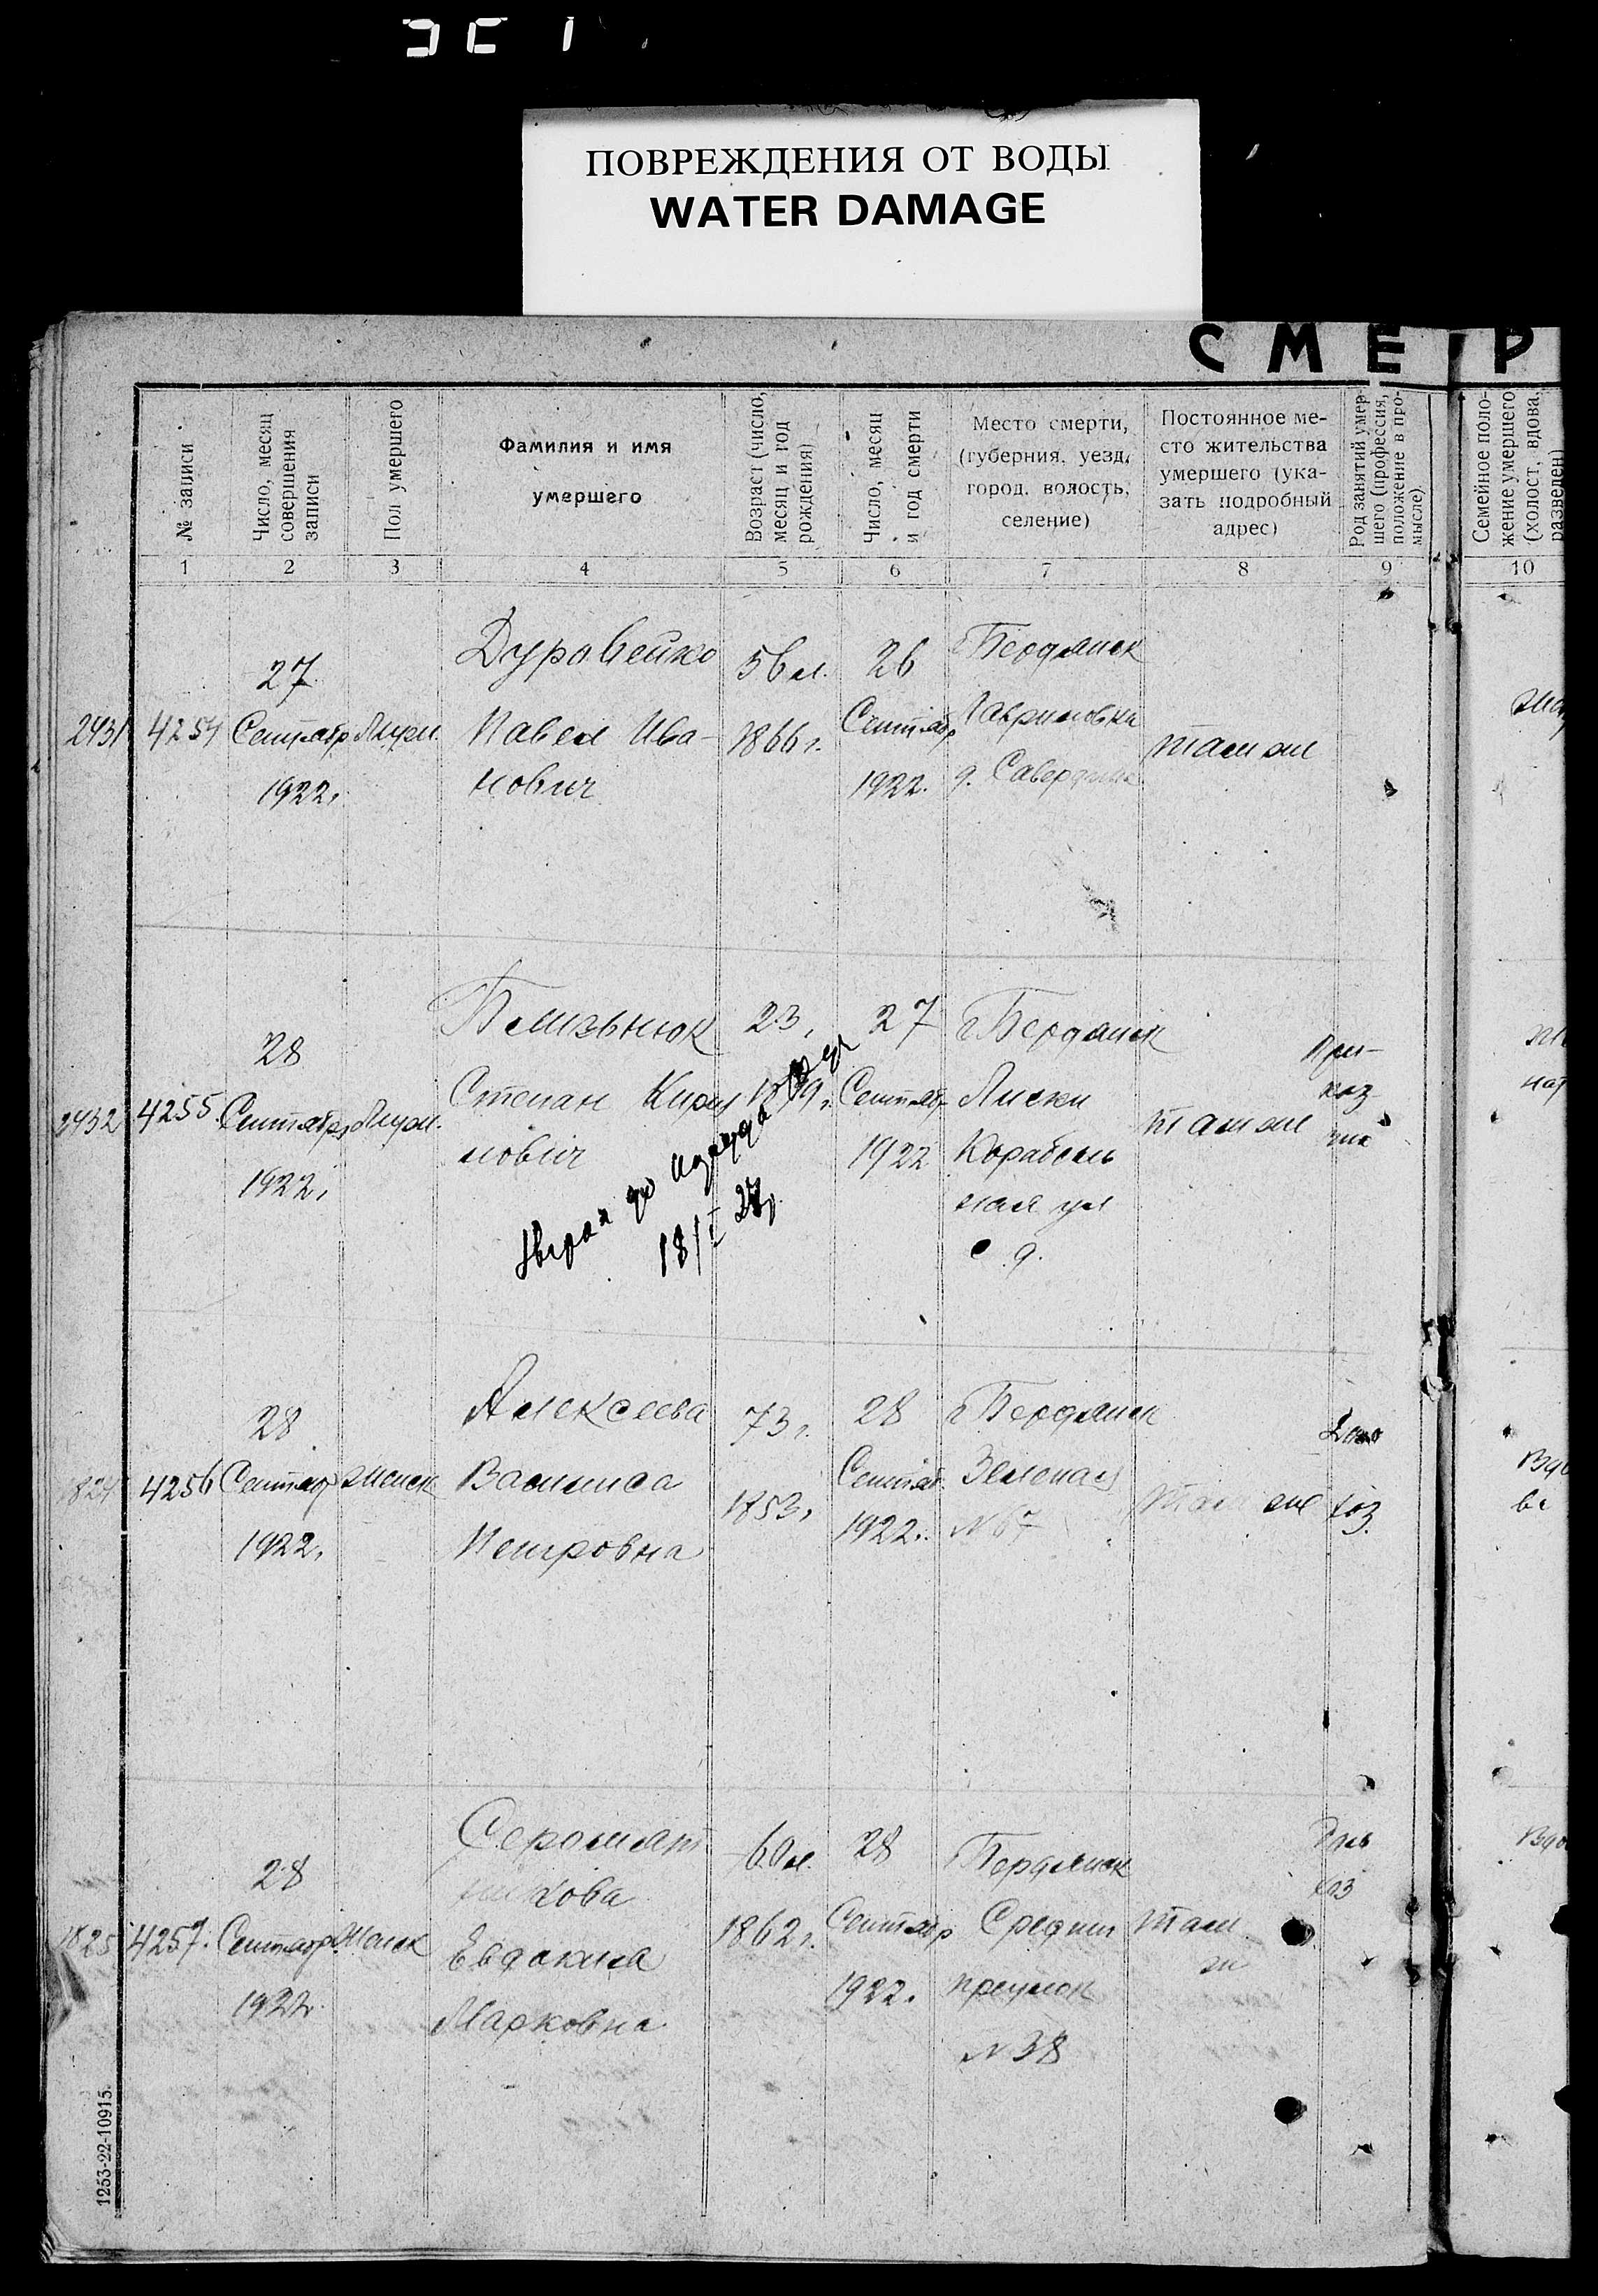 ПОВРЕЖДЕНИЯ ОТ ВОДЫ
WATER DAMAGE
СМЕР
№ записи
Число, месяц
совершения
записи
Пол умершего
Фамилия и имя
умершего
Возраст (число,
месяц и год
рождения)
Число, месяц
и год смерти
Место смерти,
(губерния, уезд,
город, волость,
селение)
Постоянное ме-
сто жительства
умершего (ука-
зать подробный
адрес)
Род занятий умер-
шего (профессия,
положение в про-
мысле)
Семейное поло-
жение умершего
(холост, вдова,
разведен)
1 2 3 4 5 6 7 8 9 10
2431 4254
27
Сентябр
1922.
Муж.
Дуравейко
Павел Ива-
нович
56 л.
1866 г.
26
Сентябр
1922.
Бердянск
д.
там же
2432 4255
28
Сентябр
1922.
Муж.
Степан
нович
23.
27
Сентяб
1922
г Бердянск
Лиски
Корабель
ная ул
с. д.
там же
При-
каз-
чик
18/I 27г.
1824 4256
28
Сентябр
1922.
Женск
Алексеева
Васьлиса
Петровна
73 г.
1853.
28
Сентяб.
1922.
г Бердянск
Зеленая
№ 67
там же
хоз.
1825 4257.
28
Сентябр
1922.
Женск
Серомят
никова
Евдокия
Марковна
60 л.
1862 г.
28
Сентябр
1922.
Бердянск
Средний
№ 38
там
же
хоз
1253-22-10915.